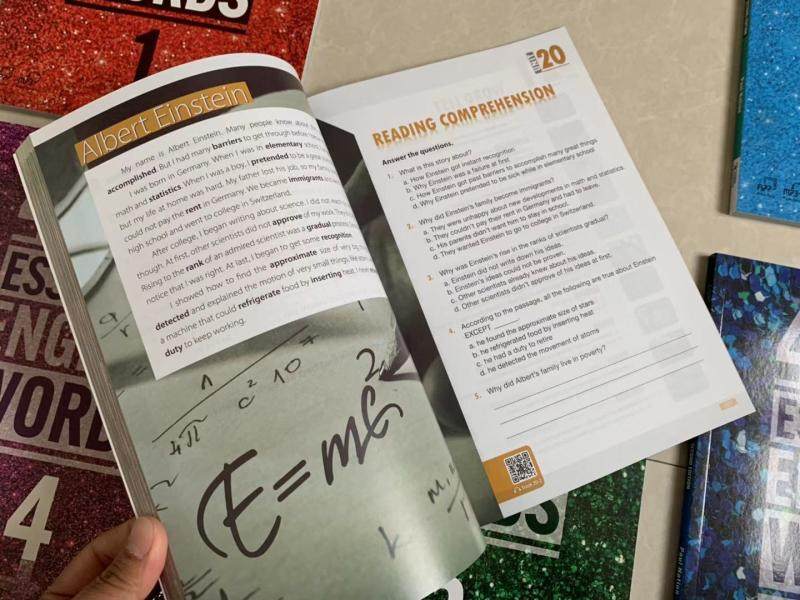 ORDS
1
Albert Einstein
My name is Albert Einstein. Many people know about
accomplished. But I had many barriers to get through before
I was born in Germany. When I was in elementary
math and statistics. When I was a boy, I pretended to be a great
but my life at home was hard. My father lost his job, so my
could not pay the rent in Germany. We became immigrants
high school and went to college in Switzerland.
After college, I began writing about science. I did not
though. At first, other scientists did not approve of my work. They
Rising to the rank of an admired scientist was a gradual
notice that I was right. At last, I began to get some recognition.
I showed how to find the approximate size of very big
detected and explained the motion of very small things, like
a machine that could refrigerate food by inserting heat. I
duty to keep working.
E=mc2
UNIT 20
READING COMPREHENSION
Answer the questions.
1. What is this story about?
a. How Einstein got instant recognition
b. Why Einstein was a failure at first
c. How Einstein got past barriers to accomplish many great things
d. Why Einstein pretended to be sick while in elementary school
2. Why did Einstein's family become immigrants?
a. They were unhappy about new developments in math and statistics.
b. They couldn't pay their rent in Germany and had to leave.
c. His parents didn't want him to stay in school.
d. They wanted Einstein to go to college in Switzerland.
3. Why was Einstein's rise in the ranks of scientists gradual?
a. Einstein did not write down his ideas.
b. Einstein's ideas could not be proven.
c. Other scientists already knew about his ideas.
d. Other scientists didn't approve of his ideas at first.
4. According to the passage, all the following are true about Einstein
EXCEPT ______.
a. he found the approximate size of stars
b. he refrigerated food by inserting heat
c. he had a duty to retire
d. he detected the movement of atoms
5. Why did Albert's family live in poverty?
ESS
ENG
WORD
4
Paul Nation